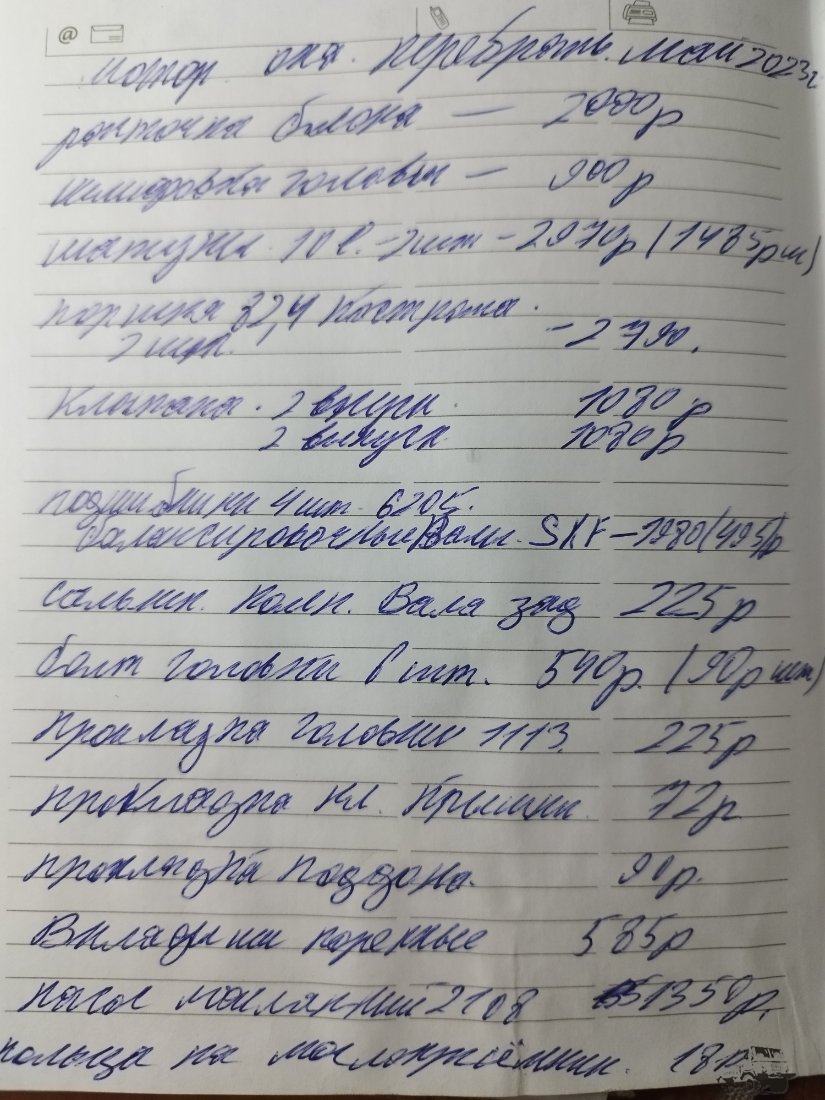 мотор ока. перебрать. май 2023г
расточка блока — 2000р
шлифовка головки — 900р
шатуны 1 0 2шт - 2970р (1485р шт)
поршня 82,4 Кострома.
2 шт. - 2790.
Клапана. 2 впуск. 1080р
2 выпуск 1080р
подшибники 4 шт. 6205.
балансировочные Валы. SKF - 1980 (495)р
сальник. колен. Вала зад 225р
болт головки 6 шт. 540р. (90р шт)
прокладка головки 1113. 225р
прокладка кл. крышки. 72р
прокладка поддона. 90р.
Вкладыши коренные 585р
насос маслянный 2108 1350р.
кольца на маслоприёмник. 18р